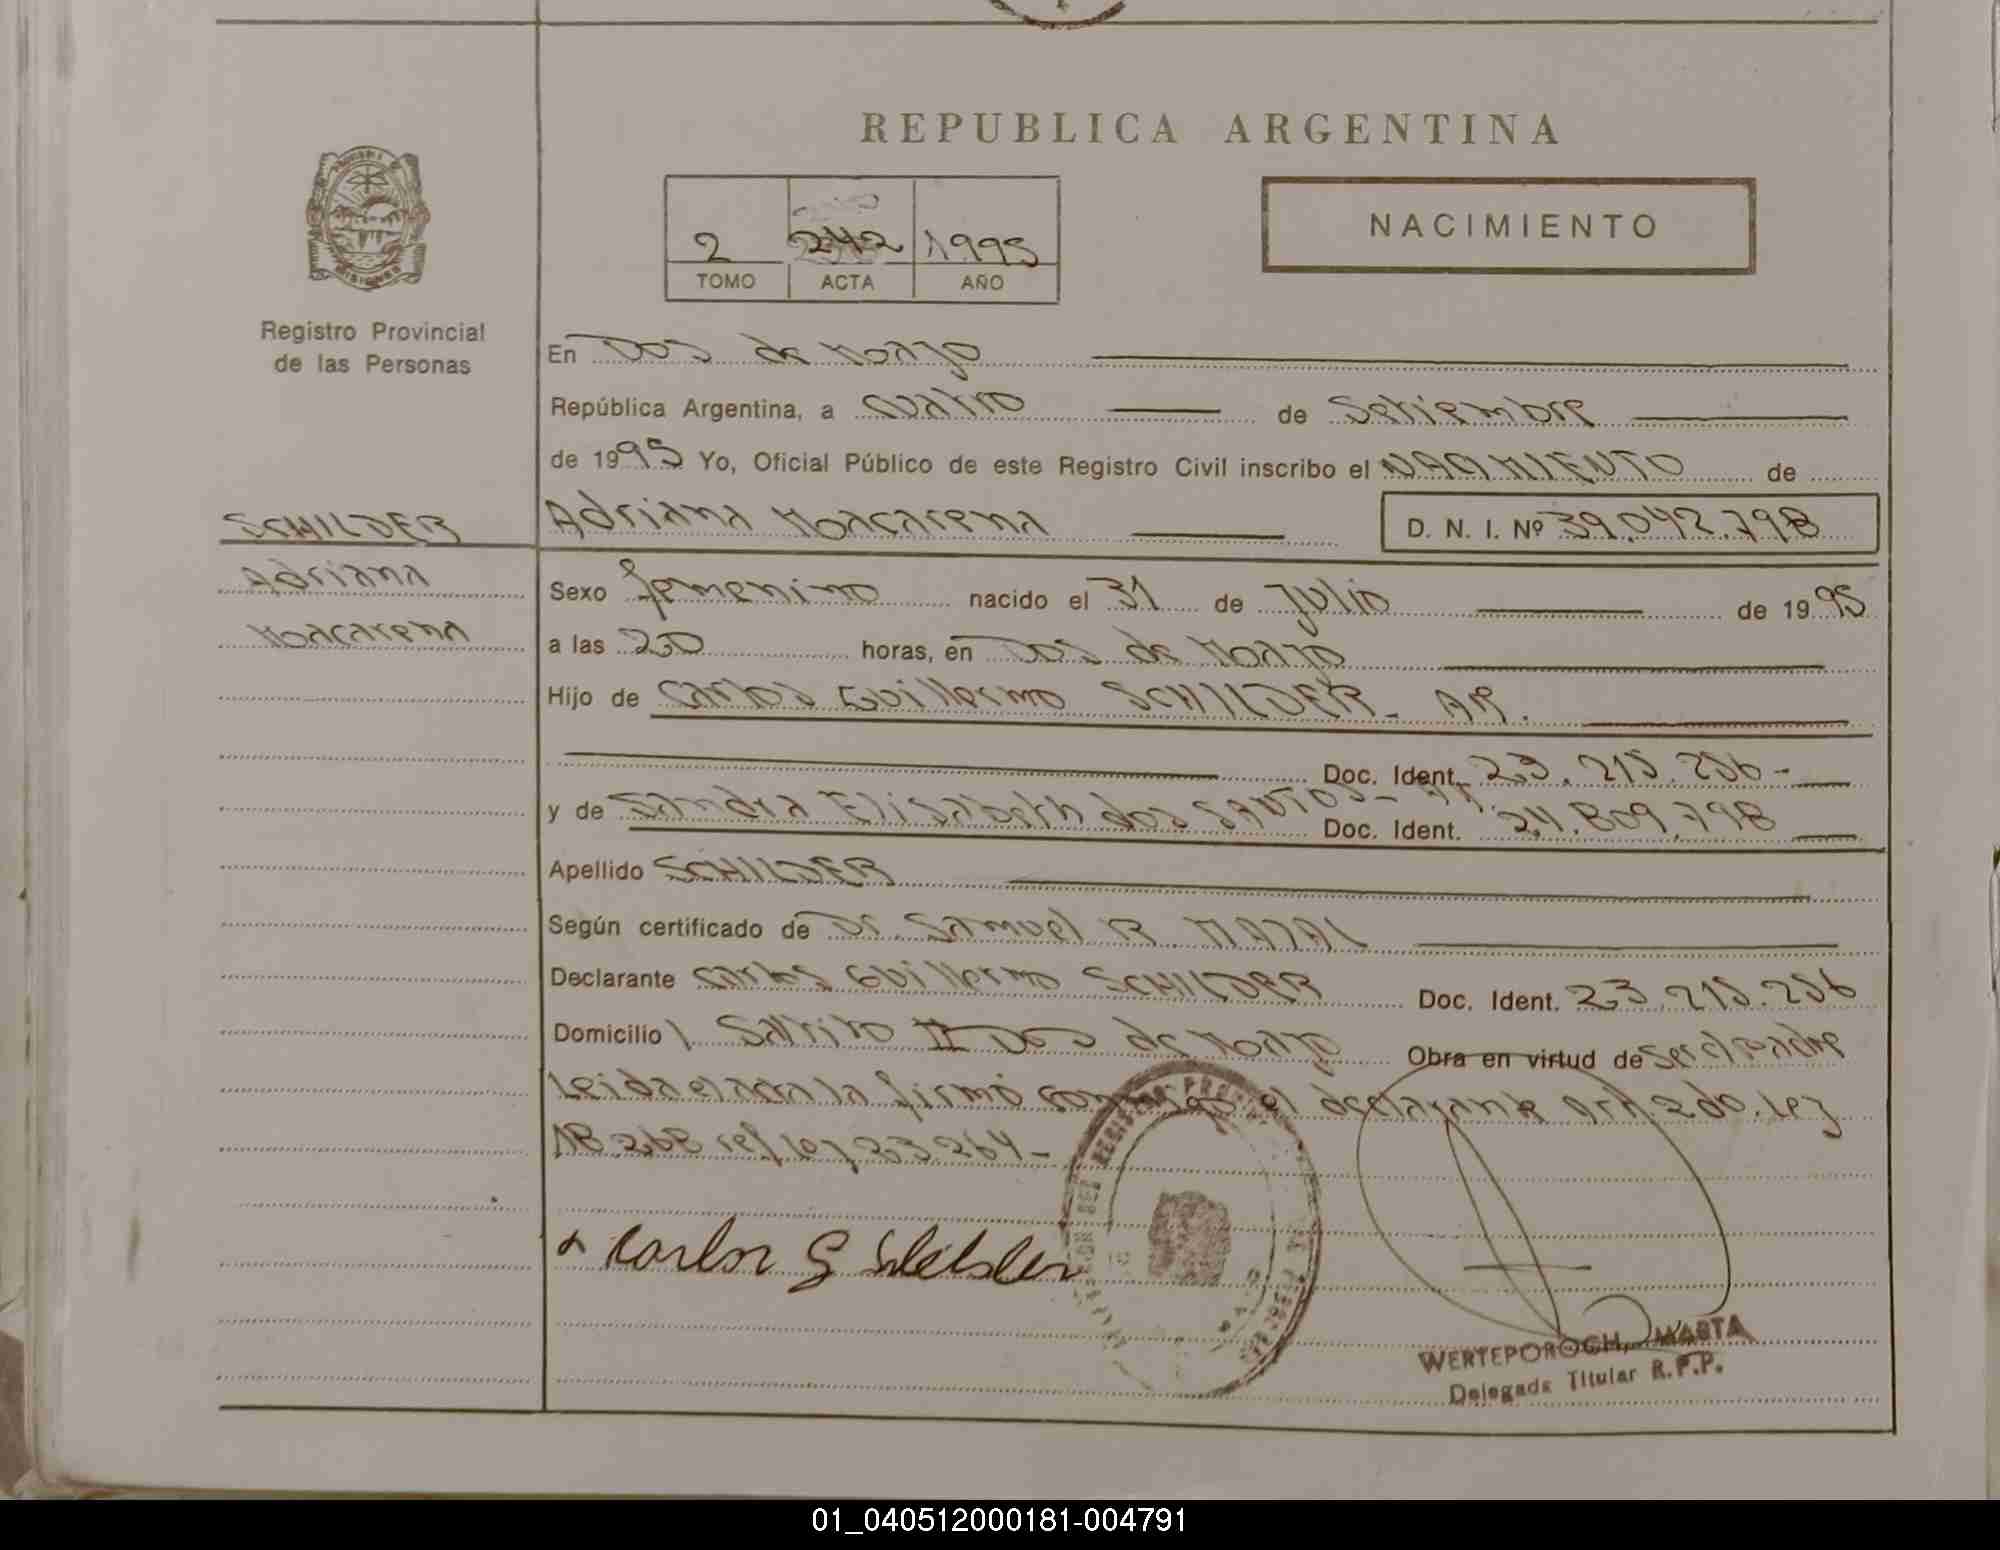 REPUBLICA ARGENTINA
NACIMIENTO
2 242 1995
TOMO ACTA AÑO
Registro Provincial
de las Personas
En Dos de Mayo
República Argentina, a cuatro de Setiembre
de 1995 Yo, Oficial Público de este Registro Civil inscribo el NACIMIENTO de
SCHILDER
Adriana
Macarena
Adriana Macarena D. N. I. Nº 39.042.798
Sexo femenino nacido el 31 de Julio de 1995
a las 20 horas, en Dos de Mayo
Hijo de Carlos Guillermo SCHILDER - AR.
Doc. Ident. 23.215.256-
y de Sandra Elisabeth dos SANTOS - AR.
Doc. Ident. 24.809.798
Apellido SCHILDER
Según certificado de Dr. Samuel R. MATAL
Declarante Carlos Guillermo SCHILDER Doc. Ident. 23.215.256
Domicilio Saltito II Dos de Mayo Obra en virtud de ser el Padre
Leida el acta la firmó conmigo el declarante art. 2do. Ley
18.248 ref. ley 23.264-
Carlos G Schilder
WERTEPOROCH, MARTA
Delegada Titular R.P.P.
01_040512000181-004791